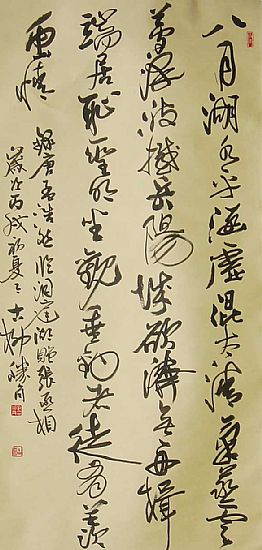 八月湖水平涵虛混太清氣蒸雲
夢澤波撼岳陽城欲濟無舟楫
端居耻聖明坐觀垂釣者徒有羨
魚情
錄唐孟浩然臨洞庭湖贈張丞相
歲次丙戌初夏